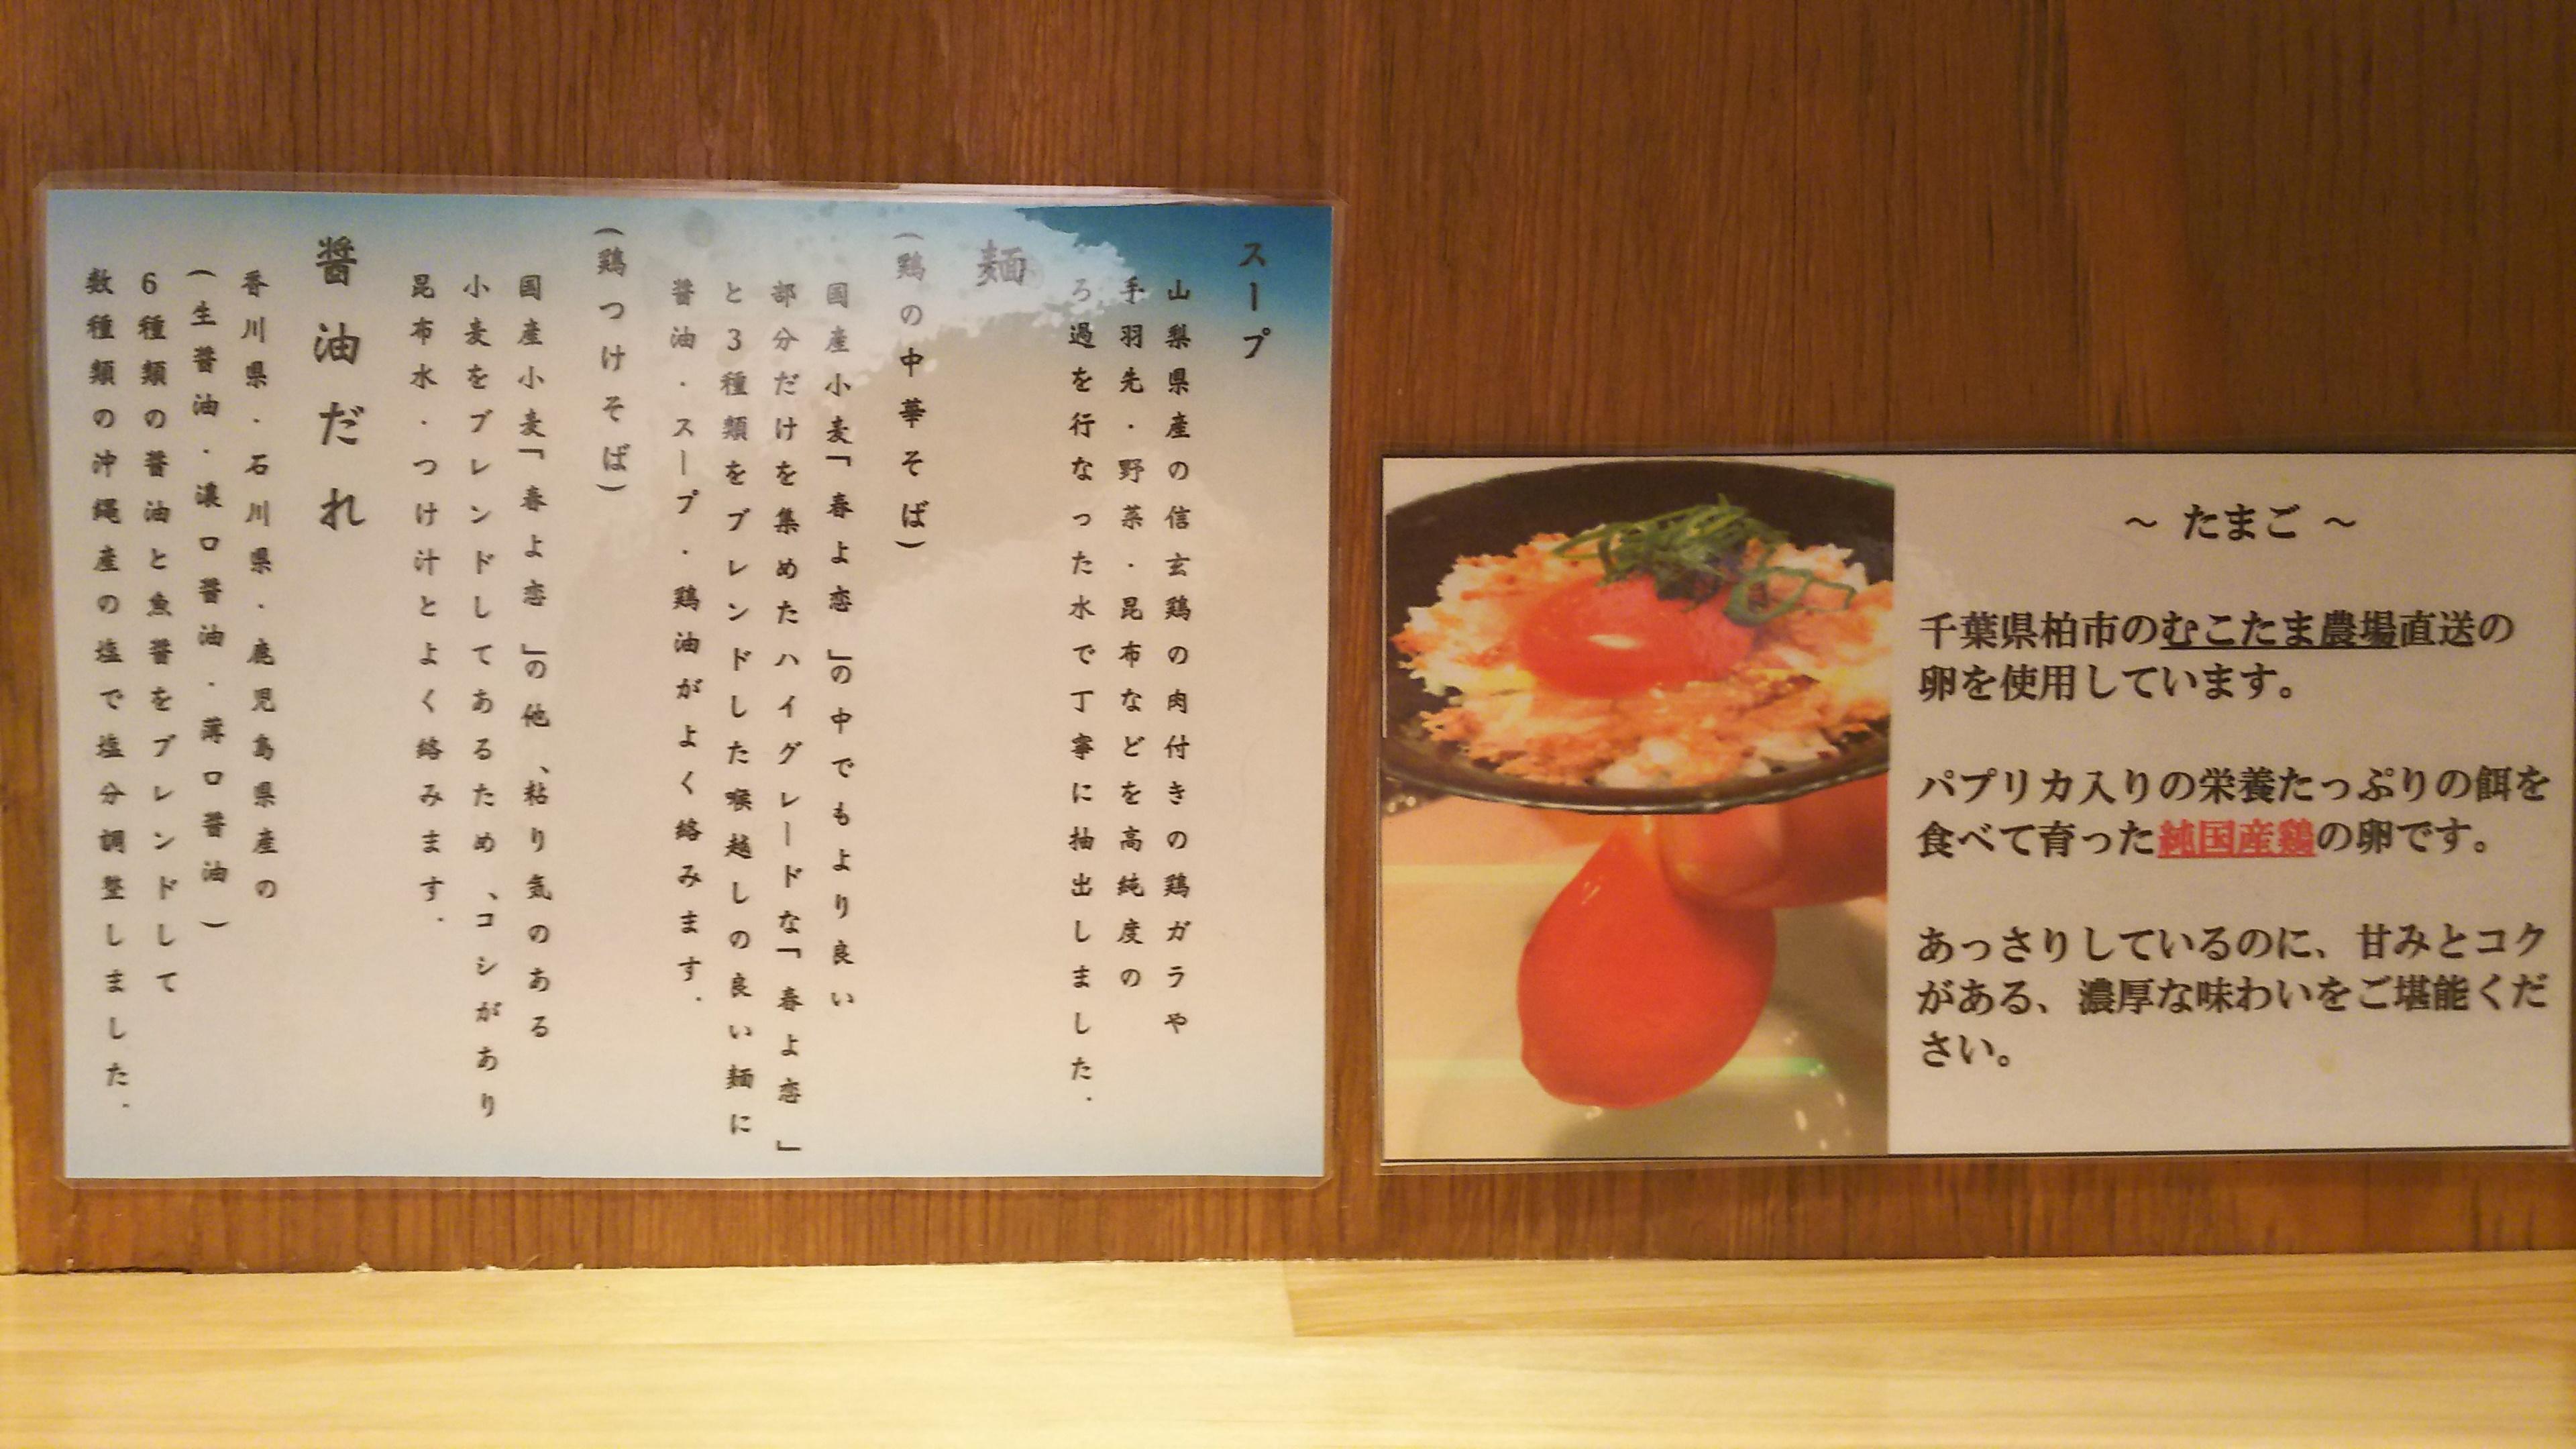 スープ
山梨県産の信玄鶏の肉付きの鶏ガラや
手羽先・野菜・昆布などを高純度の
ろ過を行なった水で丁寧に抽出しました.
麺
(鶏の中華そば)
国産小麦「春よ恋」の中でもより良い
部分だけを集めたハイグレードな「春よ恋」
と3種類をブレンドした喉越しの良い麺に
醤油.スープ.鶏油がよく絡みます.
(鶏つけそば)
国産小麦「春よ恋」の他、粘り気のある
小麦をブレンドしてあるため、コシがあり
昆布水.つけ汁とよく絡みます.
醤油だれ
香川県.石川県.鹿児島県産の
(生醤油.濃口醤油.薄口醤油)
6種類の醤油と魚醤をブレンドして
数種類の沖縄産の塩で塩分調整しました.
～ たまご ～
千葉県柏市のむこたま農場直送の
卵を使用しています。
パプリカ入りの栄養たっぷりの餌を
食べて育った純国産鶏の卵です。
あっさりしているのに、甘みとコク
がある、濃厚な味わいをご堪能くだ
さい。